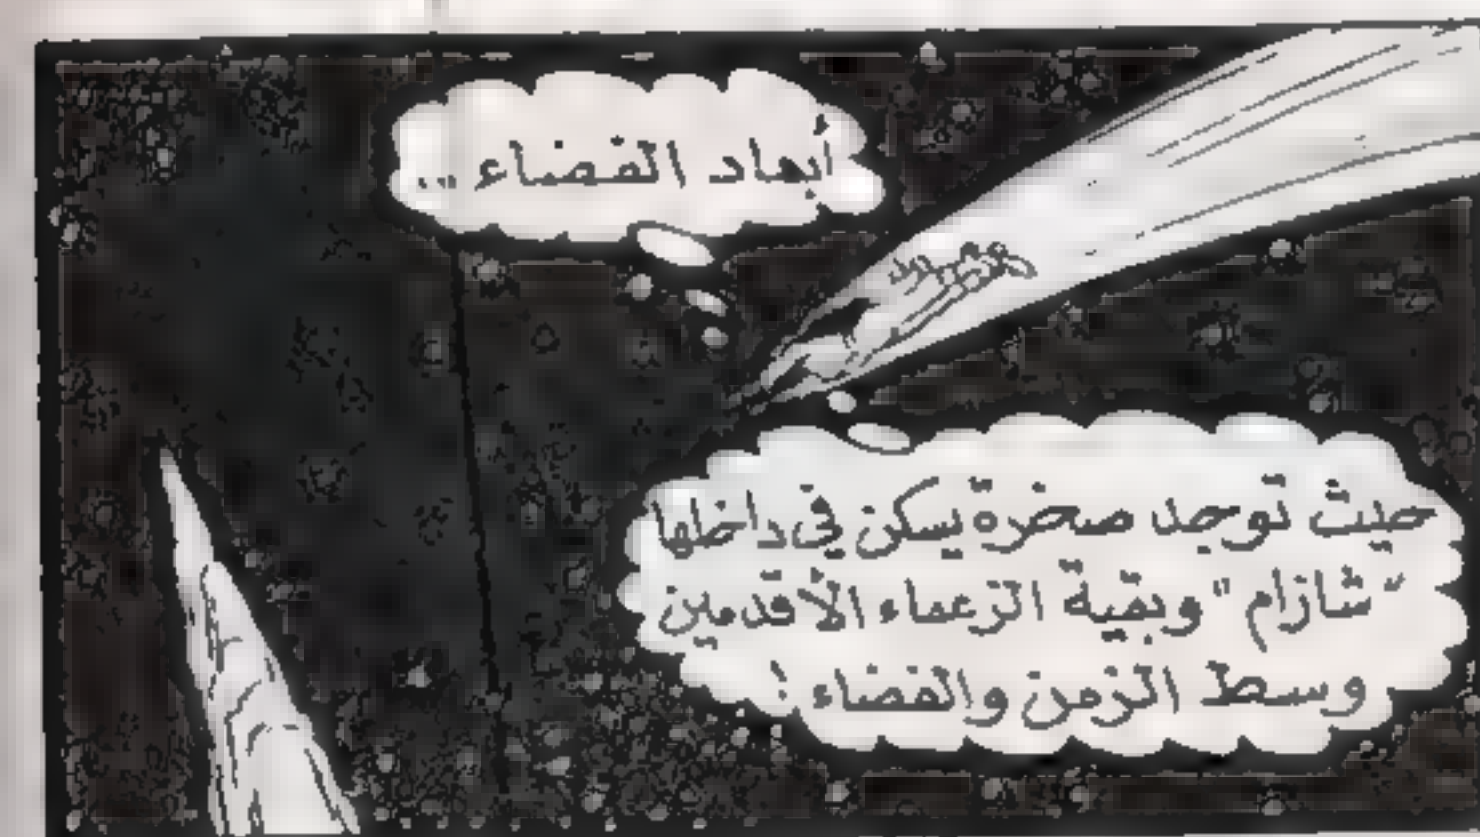 أبعاد الفضاء ...
حيث توجد صخرة يسكن في داخلها
"شازام" وبقية الزعماء الأقدمين
وسط الزمن والفضاء !